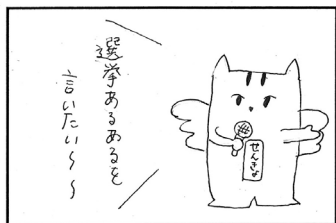 選挙あるあるを
言いたい～～
せんきょ